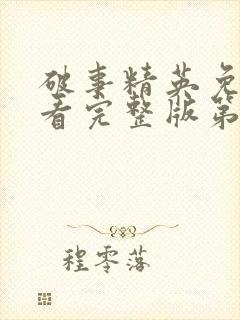 破事精英免
看完整版第
程零落